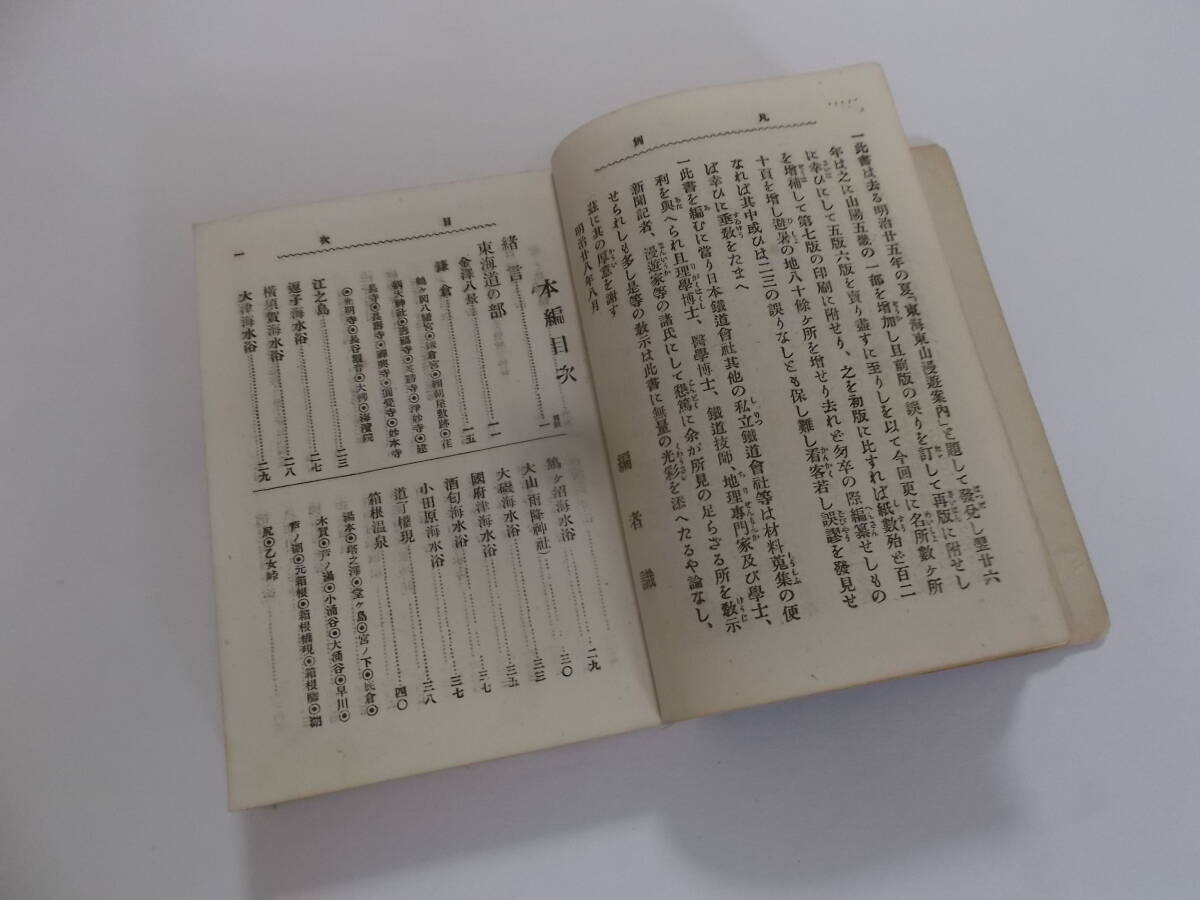 凡例
一此書は去る明治廿五年の夏「東海東山漫遊案内」と題して發兌し翌廿六
年は之に山陽五畿の一部を增加し且前版の誤りを訂して再版に附せし
に幸ひにして五版六版を賣り盡すに至りしを以て今回更に名所數ヶ所
を增補して第七版の印刷に附せり、之を初版に比すれば紙數殆ど百二
十頁を增し遊暑の地八十條ヶ所を增せり去れど匆卒の際編纂せしもの
なれば其中或ひは二三の誤りなしとも保し難し看客若し誤謬を發見せ
ば幸ひに垂敎をたまへ
一此書を編むに當り日本鐵道會社其他の私立鐵道會社等は材料蒐集の便
利を與へられ且理學博士、醫學博士、鐵道技師、地理專門家及び學士、
新聞記者、漫遊家等の諸氏にして懇篤に余が所見の足らざる所を敎示
せられしも多し是等の敎示は此書に無量の光彩を添へたるや論なし、
茲に其の厚意を謝す
明治廿八年八月
編者
目次
一
本編目次
緖言……一
東海道の部
金澤八景……一一
鎌倉……一五
鶴ヶ岡八幡宮◉鎌倉宮◉賴朝屋敷跡◉荏
柄天神社◉
寺◉淨妙寺◉建
長寺◉長壽寺◉
寺◉圓覺寺◉妙本寺
◉光明寺◉長谷觀音◉大佛◉海濱院
江之島……二三
逗子海水浴……二七
橫須賀海水浴……二八
大津海水浴……二九
鵠ヶ沼海水浴……二九
大山(雨降神社)……三〇
大磯海水浴……三三
國府津海水浴……三五
酒匂海水浴……三七
小田原海水浴……三七
道了權現……三八
箱根溫泉……四〇
湯本◉塔之澤◉堂ヶ島◉宮ノ下◉底倉◉
木賀◉芦ノ湯◉小涌谷◉大涌谷◉早川◉
芦ノ湖◉元箱根◉箱根權現◉箱根驛◉湖
尻◉乙女峠